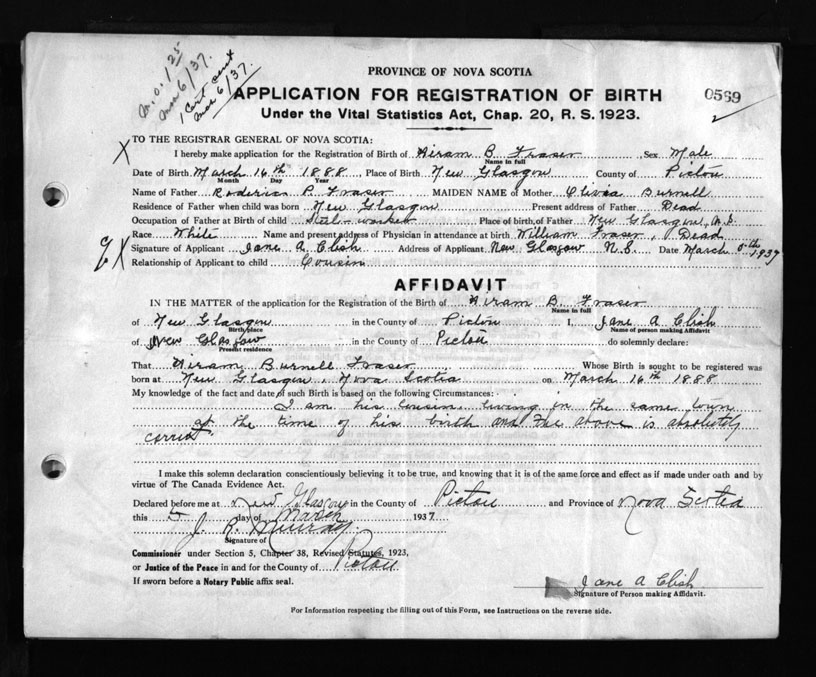 m.o. 1.25
Mar 6/37.
1 Cert sent
Mar 6/37.
PROVINCE OF NOVA SCOTIA
APPLICATION FOR REGISTRATION OF BIRTH
0569
Under the Vital Statistics Act, Chap. 20, R. S. 1923.
TO THE REGISTRAR GENERAL OF NOVA SCOTIA:
X
I hereby make application for the Registration of Birth of Hiram B. Fraser Sex Male
Name in full
Date of Birth March 16th 1888 Place of Birth New Glasgow County of Pictou
Month Day Year
Name of Father Roderick P. Fraser MAIDEN NAME of Mother Olivia Burnell
Residence of Father when child was born New Glasgow Present address of Father Dead
Occupation of Father at Birth of child Steel-worker Place of birth of Father New Glasgow, N.S.
Race White Name and present address of Physician in attendance at birth William Fraser, Dead
X Signature of Applicant Jane A Clish Address of Applicant New Glasgow N.S. Date March 5th 1937
Relationship of Applicant to child Cousin
AFFIDAVIT
IN THE MATTER of the application for the Registration of the Birth of Hiram B. Fraser
Name in full
of New Glasgow in the County of Pictou I, Jane A Clish
Birth place Name of person making Affidavit
of New Glasgow in the County of Pictou do solemnly declare:
Present residence
That Hiram Burnell Fraser Whose Birth is sought to be registered was
born at New Glasgow, Nova Scotia on March 16th 1888
My knowledge of the fact and date of such Birth is based on the following Circumstances:
I am his cousin living in the same town
at the time of his birth and the above is absolutely
correct.
I make this solemn declaration conscientiously believing it to be true, and knowing that it is of the same force and effect as if made under oath and by
virtue of The Canada Evidence Act.
Declared before me at New Glasgow in the County of Pictou and Province of Nova Scotia
this 5 day of March 1937
J. R. Murray
Signature of
Commissioner under Section 5, Chapter 38, Revised Statutes, 1923,
or Justice of the Peace in and for the County of Pictou
If sworn before a Notary Public affix seal.
Jane A Clish
Signature of Person making Affidavit.
For Information respecting the filling out of this Form, see Instructions on the reverse side.